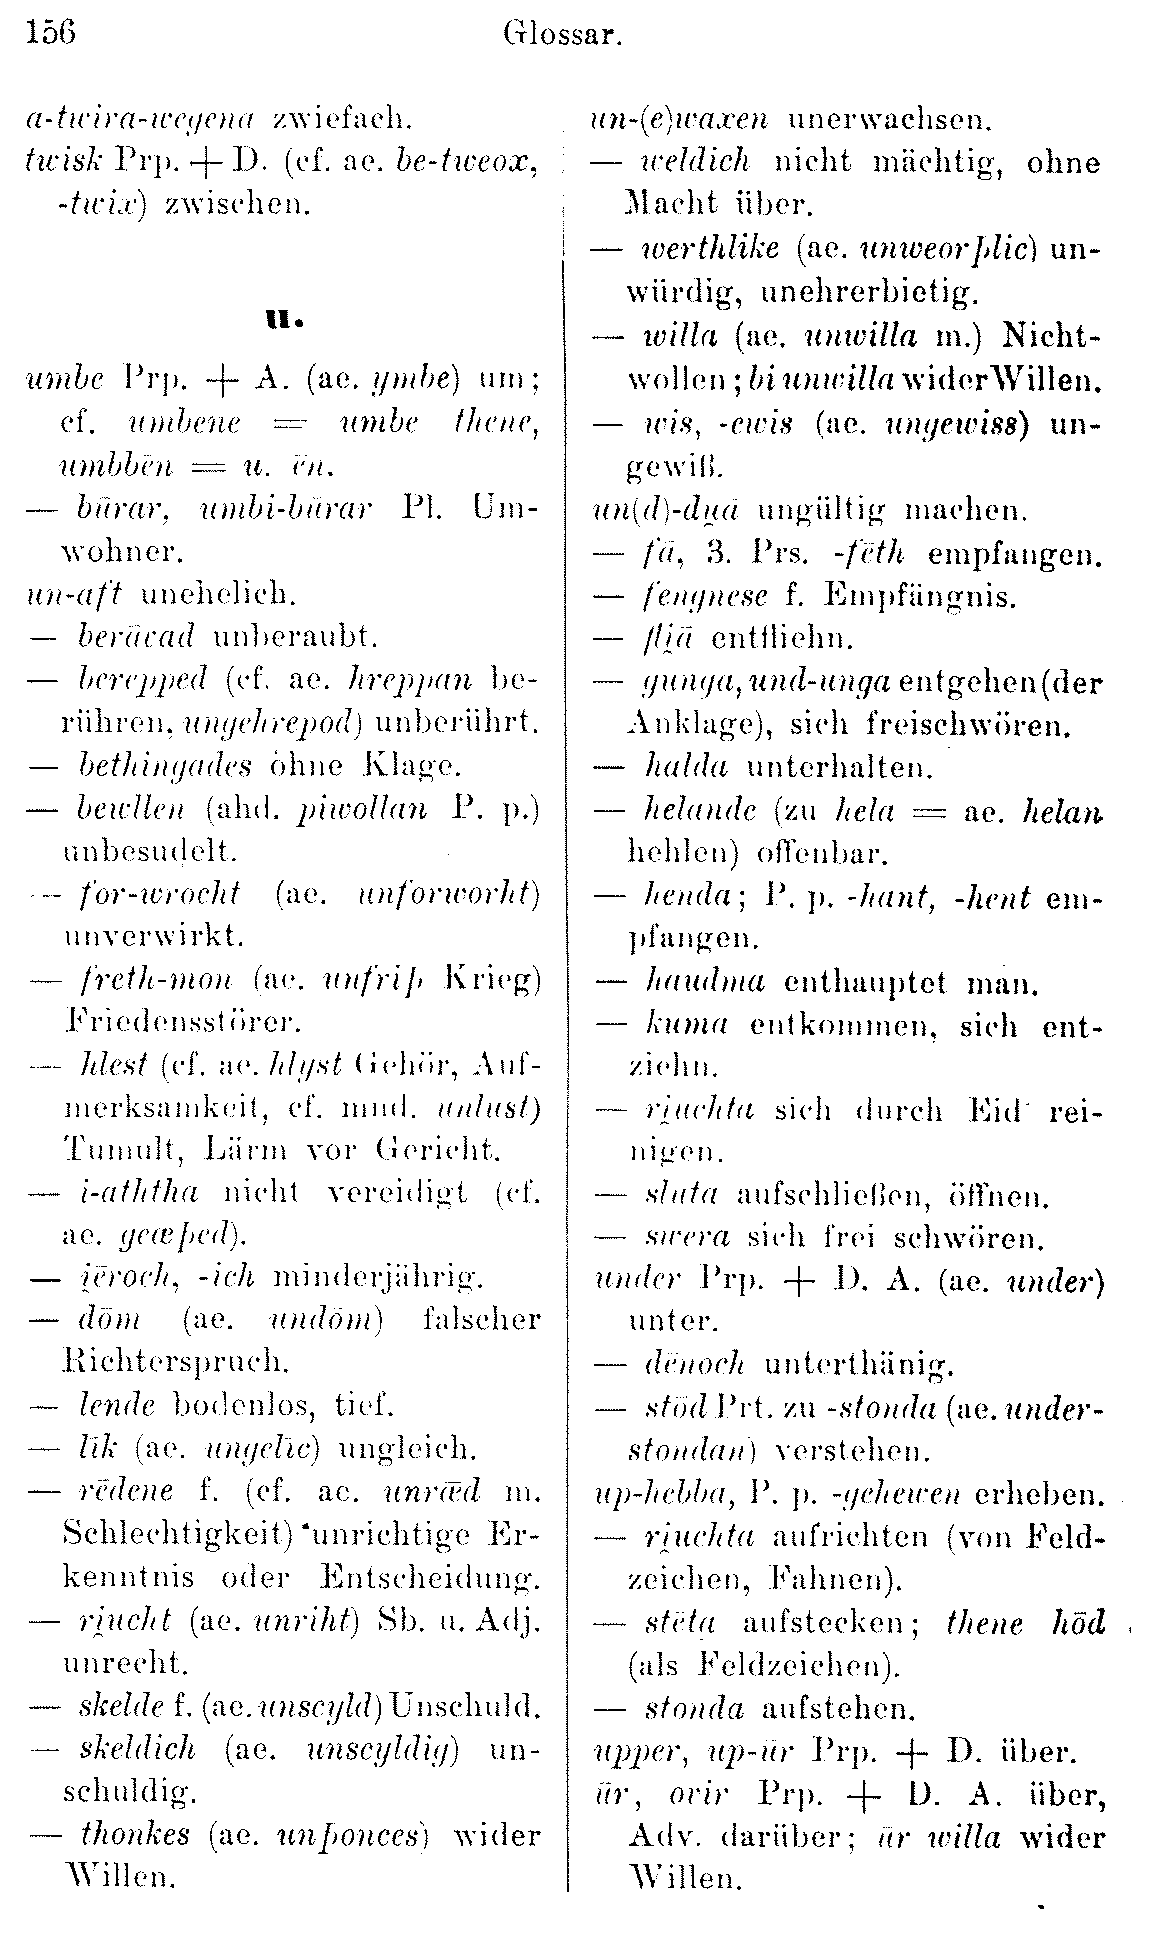 156
Glossar.
a-twira-wegena zwiefach.
twisk Prp. + D. (cf. ae. be-tweox,
-twix) zwischen.
u.
umbe Prp. + A. (ae. ymbe) um;
cf. umbene = umbe thene,
umbbēn = u. ēn.
— būrar, umbi-būrar Pl. Um-
wohner.
un-aft unehelich.
— berācad unberaubt.
— berepped (cf. ae. hreppan be-
rühren, ungehrepod) unberührt.
— bethingades ohne Klage.
— bewllen (ahd. piwollan P. p.)
unbesudelt.
— for-wrocht (ae. unforworht)
unverwirkt.
— freth-mon (ae. unfriþ Krieg)
Friedensstörer.
— hlest (cf. ae. hlyst Gehör, Auf-
merksamkeit, cf. mnd. unlust)
Tumult, Lärm vor Gericht.
— i-aththa nicht vereidigt (cf.
ae. geæþed).
— i̯ēroch, -ich minderjährig.
— dōm (ae. undōm) falscher
Richterspruch.
— lende bodenlos, tief.
— līk (ae. ungelīc) ungleich.
— rēdene f. (cf. ae. unrǣd m.
Schlechtigkeit) unrichtige Er-
kenntnis oder Entscheidung.
— ri̯ucht (ae. unriht) Sb. u. Adj.
unrecht.
— skelde f. (ae. unscyld) Unschuld.
— skeldich (ae. unscyldig) un-
schuldig.
— thonkes (ae. unþonces) wider
Willen.
un-(e)waxen unerwachsen.
— weldich nicht mächtig, ohne
Macht über.
— werthlike (ae. unweorþlic) un-
würdig, unehrerbietig.
— willa (ae. unwilla m.) Nicht-
wollen; bi unwilla wider Willen.
— wis, -ewis (ae. ungewiss) un-
gewiß.
un(d)-du̯ā ungültig machen.
— fā, 3. Prs. -fēth empfangen.
— fengnese f. Empfängnis.
— fli̯ā entfliehn.
— gunga, und-unga entgehen (der
Anklage), sich freischwören.
— halda unterhalten.
— helande (zu hela = ae. helan
hehlen) offenbar.
— henda; P. p. -hant, -hent em-
pfangen.
— haudma enthauptet man.
— kuma entkommen, sich ent-
ziehn.
— ri̯uchta sich durch Eid rei-
nigen.
— sluta aufschließen, öffnen.
— swera sich frei schwören.
under Prp. + D. A. (ae. under)
unter.
— dēnoch unterthänig.
— stōd Prt. zu -stonda (ae. under-
stondan) verstehen.
up-hebba, P. p. -gehewen erheben.
— ri̯uchta aufrichten (von Feld-
zeichen, Fahnen).
— stēta aufstecken; thene hōd
(als Feldzeichen).
— stonda aufstehen.
upper, up-ūr Prp. + D. über.
ūr, ovir Prp. + D. A. über,
Adv. darüber; ūr willa wider
Willen.